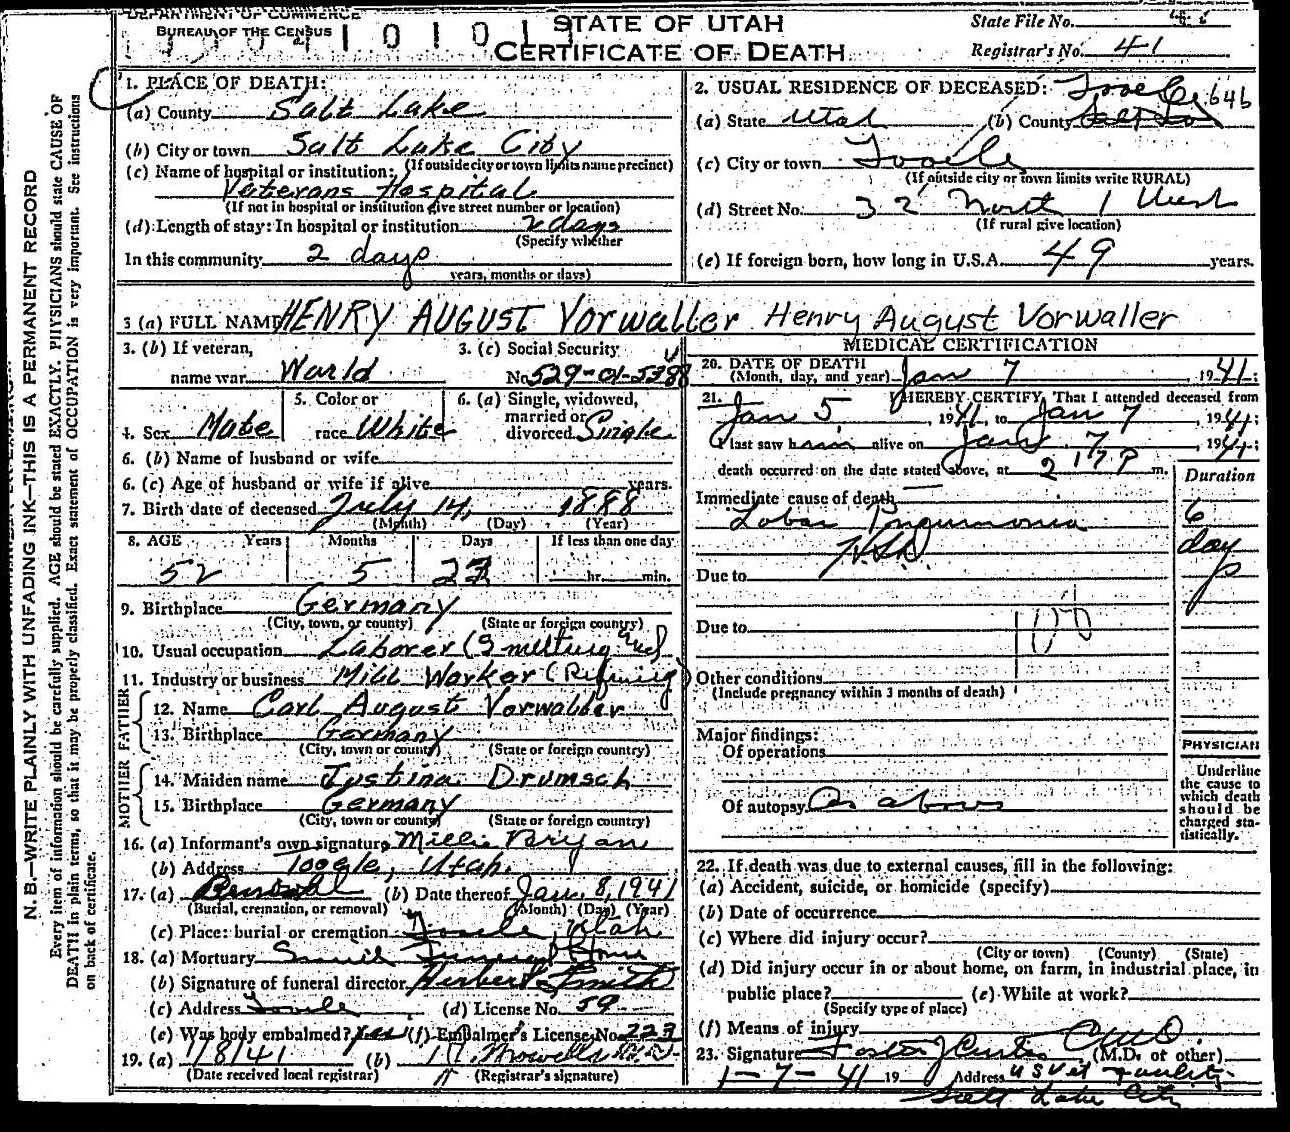 DEPARTMENT OF COMMERCE
BUREAU OF THE CENSUS
STATE OF UTAH
CERTIFICATE OF DEATH
State File No.
Registrar's No. 41
N. B.—WRITE PLAINLY WITH UNFADING INK—THIS IS A PERMANENT RECORD
Every item of information should be carefully supplied. AGE should be stated EXACTLY. PHYSICIANS should state CAUSE OF
DEATH in plain terms, so that it may be properly classified. Exact statement of OCCUPATION is very important. See instructions
on back of certificate.
1. PLACE OF DEATH:
(a) County Salt Lake
(b) City or town Salt Lake City
(If outside city or town limits name precinct)
(c) Name of hospital or institution:
Veterans Hospital
(If not in hospital or institution give street number or location)
(d) Length of stay: In hospital or institution 2 days
(Specify whether
In this community 2 days
years, months or days)
2. USUAL RESIDENCE OF DECEASED: Tooele 646
(a) State Utah (b) County Salt Lake
(c) City or town Tooele
(If outside city or town limits write RURAL)
(d) Street No. 32 North 1 West
(If rural give location)
(e) If foreign born, how long in U.S.A. 49 years.
3 (a) FULL NAME HENRY AUGUST Vorwaller Henry August Vorwaller
3. (b) If veteran,
name war World
3. (c) Social Security
No. 529-01-5388
4. Sex Male
5. Color or
race White
6. (a) Single, widowed,
married or
divorced Single
6. (b) Name of husband or wife
6. (c) Age of husband or wife if alive years.
7. Birth date of deceased July 14, 1888
(Month) (Day) (Year)
8. AGE Years Months Days If less than one day
52 5 23 hr. min.
9. Birthplace Germany
(City, town, or county) (State or foreign country)
10. Usual occupation Laborer (Smelting Ind)
11. Industry or business Mill Worker (Refining)
FATHER
12. Name Carl August Vorwaller
13. Birthplace Germany
(City, town or county) (State or foreign country)
MOTHER
14. Maiden name Justina Drumsch
15. Birthplace Germany
(City, town or county) (State or foreign country)
16. (a) Informant's own signature Millie Bryan
(b) Address Tooele, Utah.
17. (a) (b) Date thereof Jan. 8, 1941
(Burial, cremation, or removal) (Month) (Day) (Year)
(c) Place: burial or cremation Tooele, Utah
18. (a) Mortuary Smith Funeral Home
(b) Signature of funeral director Herbert Smith
(c) Address Tooele (d) License No. 59
(e) Was body embalmed? yes (f) Embalmer's License No. 223
19. (a) 1/8/41 (b)
(Date received local registrar) (Registrar's signature)
MEDICAL CERTIFICATION
20. DATE OF DEATH
(Month, day, and year) Jan 7, 1941;
21. I HEREBY CERTIFY, That I attended deceased from
Jan 5, 1941, to Jan 7, 1941;
I last saw him alive on Jan 7, 1941;
death occurred on the date stated above, at 2 17 P m.
Duration
Immediate cause of death
Lobar Pneumonia 6
days
Due to
Due to
108
Other conditions
(Include pregnancy within 3 months of death)
Major findings:
Of operations
Of autopsy As above
PHYSICIAN
Underline
the cause to
which death
should be
charged sta-
tistically.
22. If death was due to external causes, fill in the following:
(a) Accident, suicide, or homicide (specify)
(b) Date of occurrence
(c) Where did injury occur?
(City or town) (County) (State)
(d) Did injury occur in or about home, on farm, in industrial place, in
public place? (e) While at work?
(Specify type of place)
(f) Means of injury
23. Signature Foster J Curtis (M.D. or other)
1-7-41 19 Address US Vet Facility
Salt Lake City